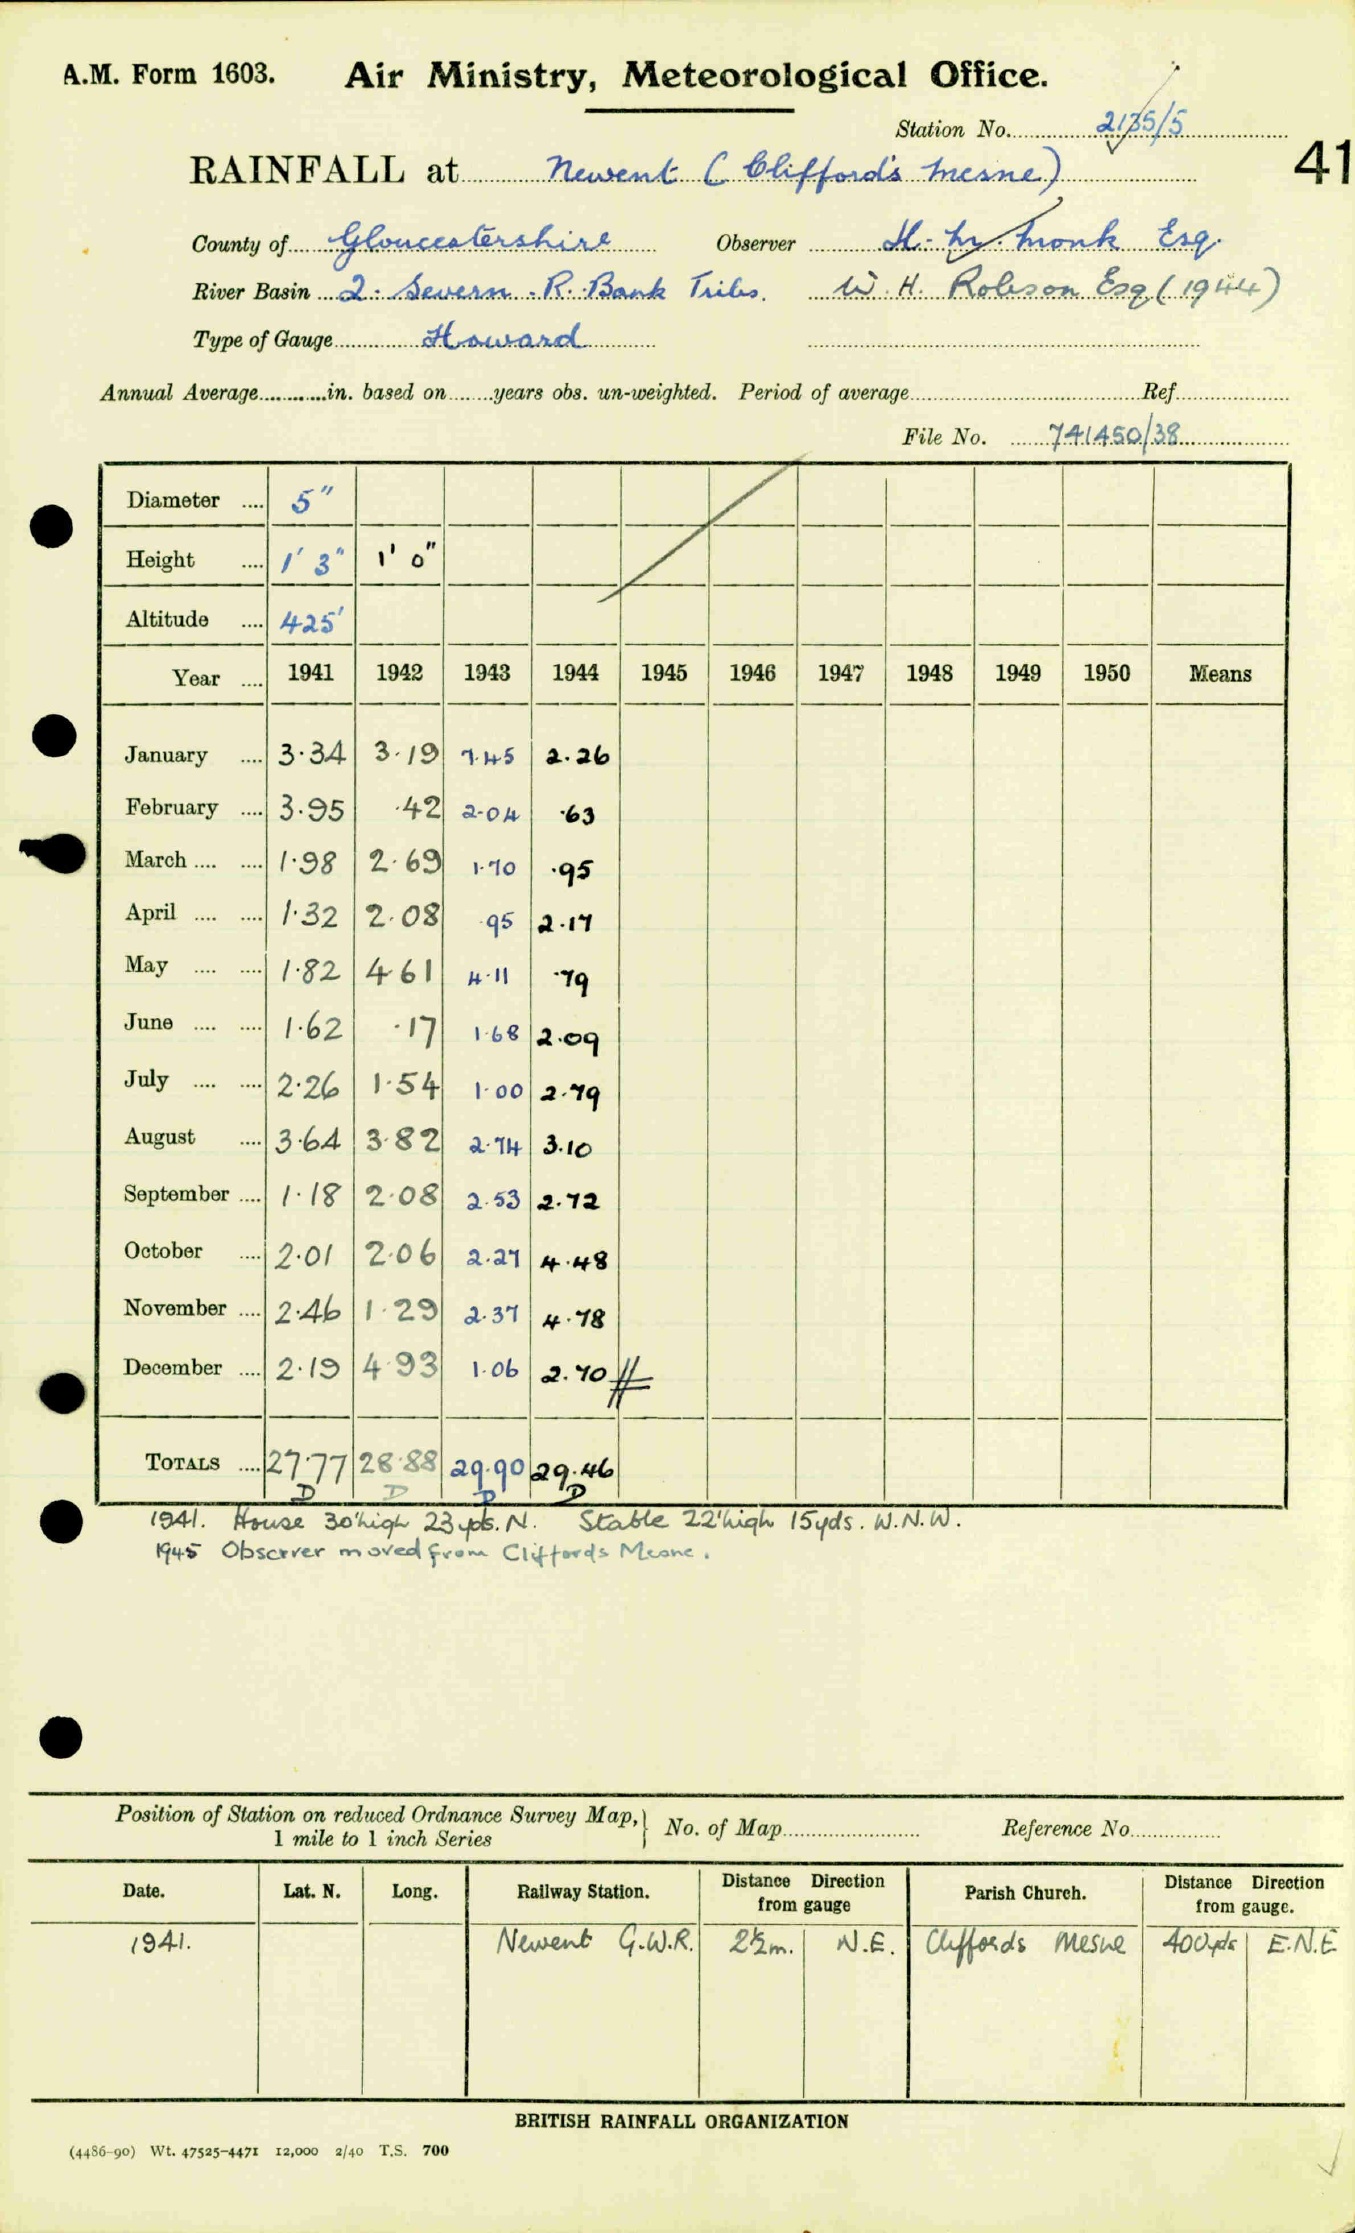 A.M. Form 1603. Air Ministry, Meteorological Office.
Station No. 2135/5
41
RAINFALL at Newent (Clifford's Mesne)
County of Gloucestershire Observer H. M. Monk Esq.
River Basin 2. Severn. R. Bank Tribs. W. H. Robson Esq (1944)
Type of Gauge Howard
Annual Average in. based on years obs. un-weighted. Period of average Ref
File No. 741450/38
Diameter 5"
Height 1' 3" 1' 0"
Altitude 425'
Year 1941 1942 1943 1944 1945 1946 1947 1948 1949 1950 Means
January 3.34 3.19 7.45 2.26
February 3.95 .42 2.04 .63
March 1.98 2.69 1.70 .95
April 1.32 2.08 .95 2.17
May 1.82 4.61 4.11 .79
June 1.62 .17 1.68 2.09
July 2.26 1.54 1.00 2.79
August 3.64 3.82 2.74 3.10
September 1.18 2.08 2.53 2.72
October 2.01 2.06 2.27 4.48
November 2.46 1.29 2.37 4.78
December 2.19 4.93 1.06 2.70
TOTALS 27.77 28.88 29.90 29.46
D D D D
1941. House 30' high 23 yds. N. Stable 22' high 15 yds. W.N.W.
1945 Observer moved from Cliffords Mesne.
Position of Station on reduced Ordnance Survey Map, No. of Map Reference No
1 mile to 1 inch Series
Date. Lat. N. Long. Railway Station. Distance Direction from gauge Parish Church. Distance Direction from gauge.
1941. Newent G.W.R. 2½ m. N.E. Cliffords Mesne 400 yds E.N.E
BRITISH RAINFALL ORGANIZATION
(4486-90) Wt. 47525-4471 12,000 2/40 T.S. 700